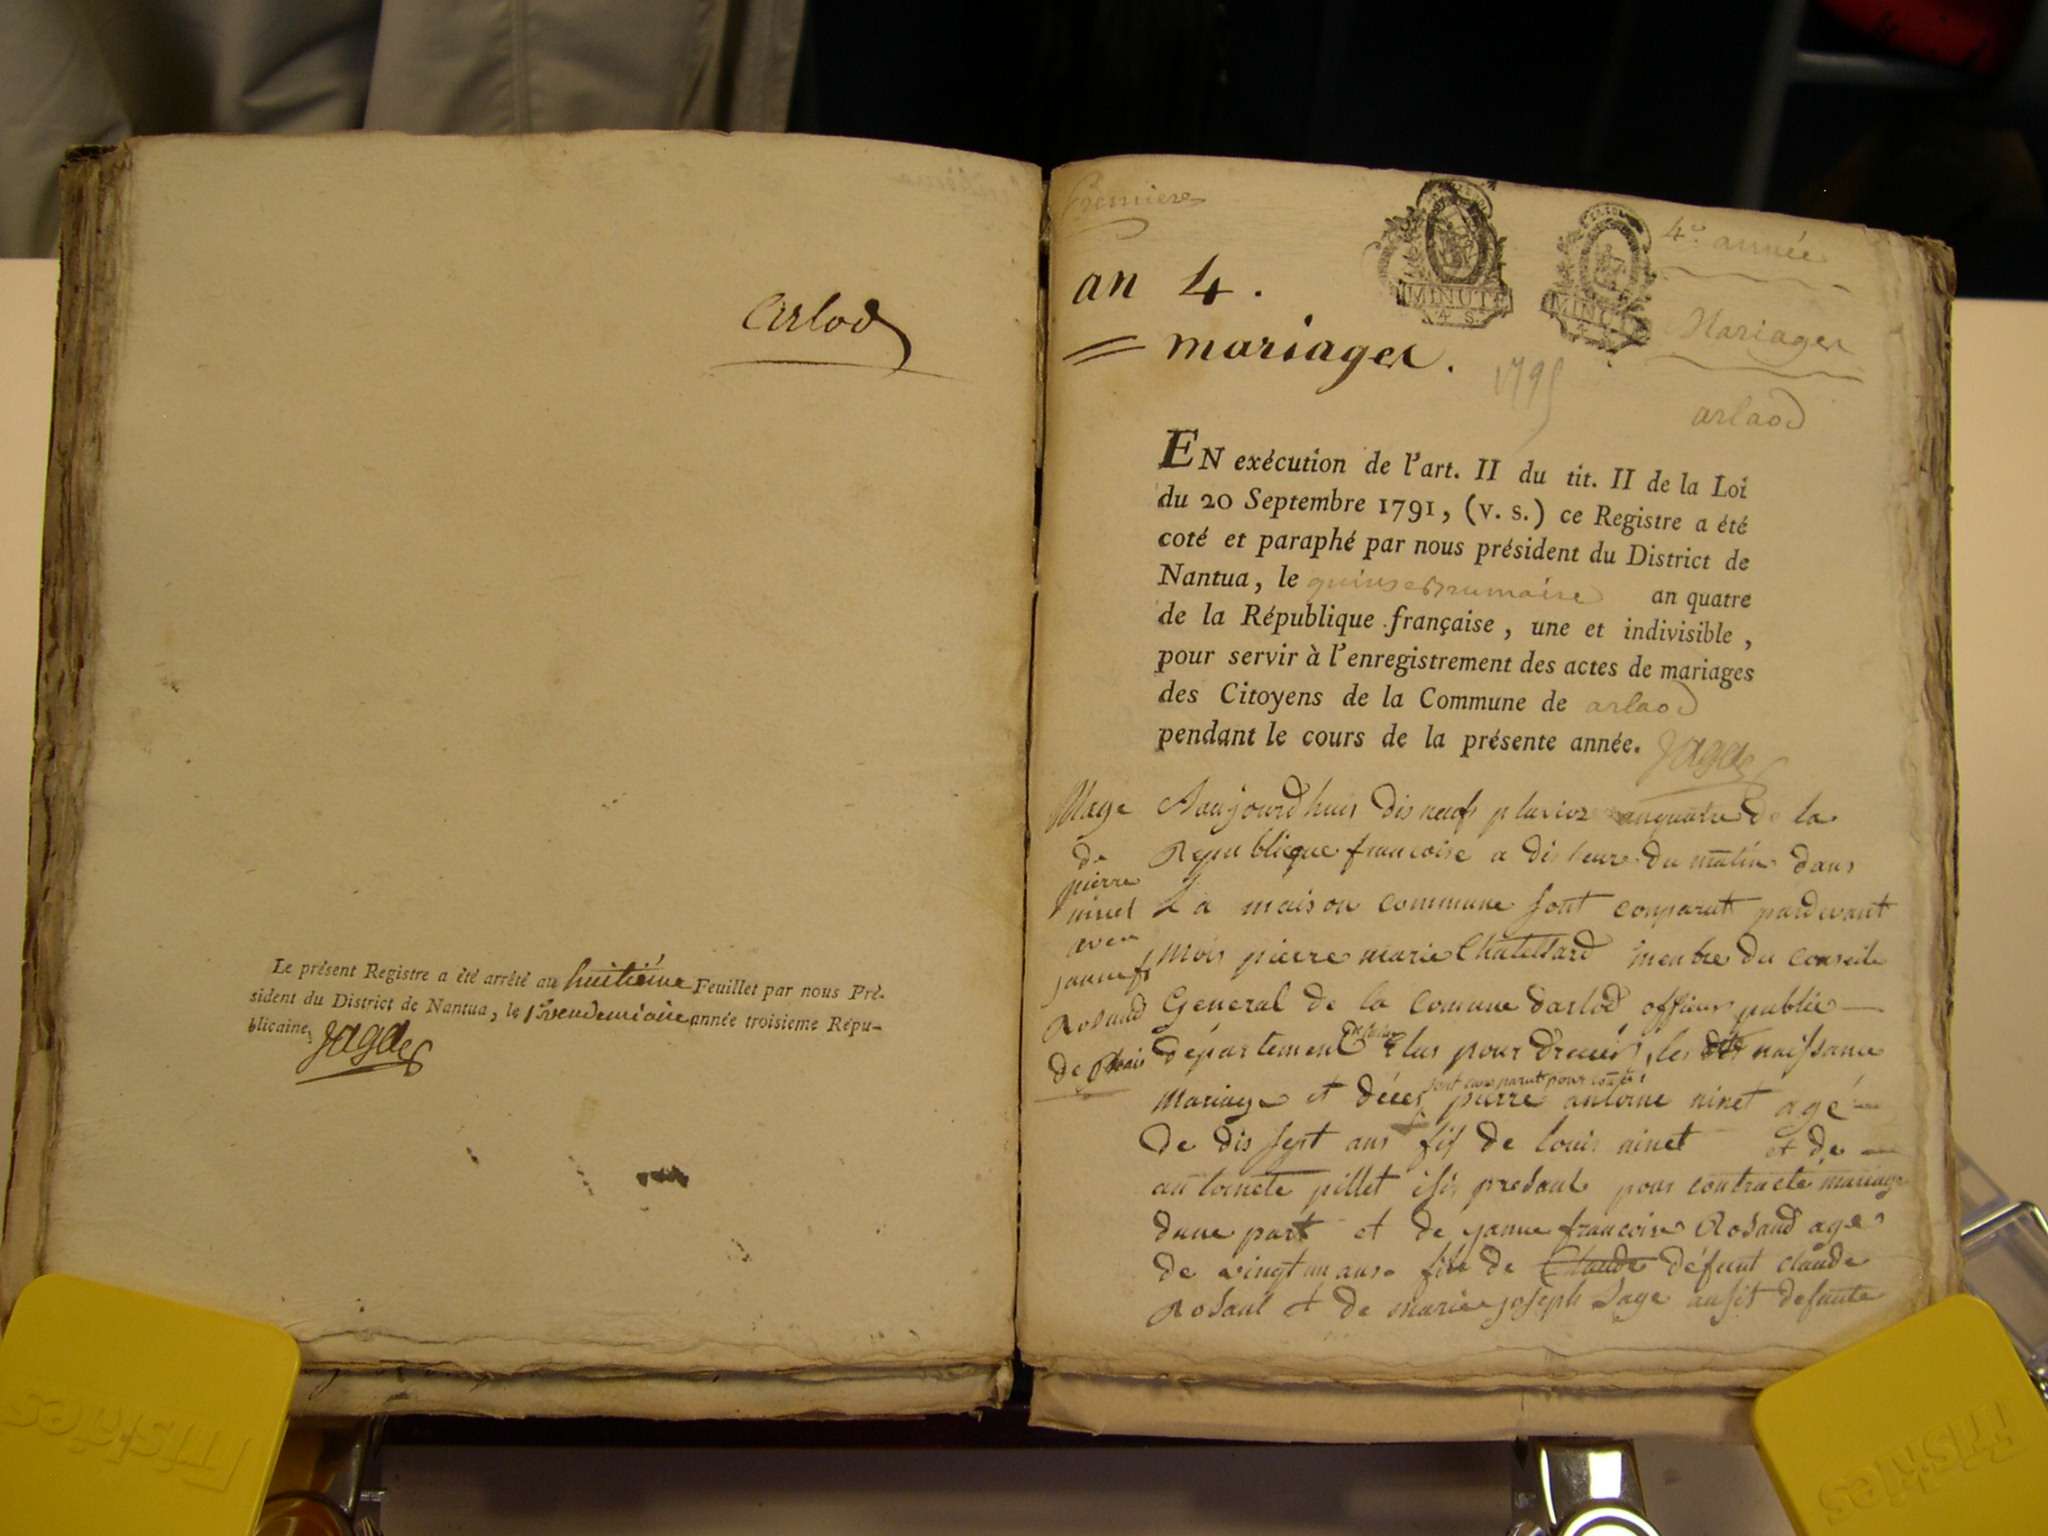 Arlod
Le présent Registre a été arrêté au huitiéme Feuillet par nous Pré-
sident du District de Nantua, le 1er vendemiaire année troisieme Répu-
blicaine,
Premiere
an 4.
mariages.
MINUTE
4 S.
MINUTE
4e année
Mariages
1795
arlaod
EN exécution de l'art. II du tit. II de la Loi
du 20 Septembre 1791, (v. s.) ce Registre a été
coté et paraphé par nous président du District de
Nantua, le quinse Brumaire an quatre
de la République française, une et indivisible,
pour servir à l'enregistrement des actes de mariages
des Citoyens de la Commune de arlaod
pendant le cours de la présente année.
Mage
de
pierre
ninet
avec
janne f
Rosand
de
Aaujourdhuis dis neuf pluvioz anquatre de la
Republicque francoise a dis heure du matin dans
La maison commune sont conparut pardevant
Mois pierre marie Chatellard menbre du conseile
General de la comune darlod officier public
département elus pour les naissance
Mariage et décés pierre antoine ninet agé
De dis sept ans fis de louis ninet et de
antoinete pillet isis presant pour contracté mariage
dune part et de janne francoise Rosand age
de vingt un ans fille de Claude défunt claude
Rosant et de marie joseph Sage ausit defunte
Fristies
Fristies